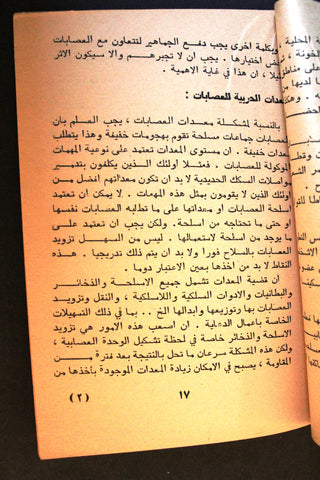 المحلية ، وبكلمة اخرى يجب دفع الجماهير لتتعاون مع العصابات
بمحض اختيارها . ويجب ان لا تجبرهم والا سيكون الاثر
، ان هذا في غاية الاهمية .
معدات الحربية للعصابات :
بالنسبة لمشكلة معدات العصابات ، يجب العلم بان
العصابات جماعات مسلحة تقوم بهجومات خفيفة وهذا يتطلب
معدات خفيفة . ان مستوى المعدات تعتمد على نوعية المهمات
الموكولة للعصابات . فمثلا اولئك الذين يكلفون بتدمير
مواصلات السكك الحديدية لا بد ان تكون معداتهم افضل من
اولئك الذين لا يقومون بمثل هذه المهمات . لا يمكن ان تعتمد
اسلحة العصابات او معداتها على ما تطلبه العصابات نفسها
او حتى ما تحتاجه من اسلحة . ولكن يجب ان تعتمد على
ما يوجد من اسلحة لاستعمالها . ليس من السهل تزويد
العصابات بالسلاح فورا ولا بد ان يتم ذلك تدريجيا . هذه
النقاط لا بد من اخذها بعين الاعتبار دوما .
ان قضية المعدات تشمل جميع الاسلحة والذخائر
والبطانيات والادوات السلكية واللاسلكية ، والنقل وتزويد
العصابات بها وتوزيعها وابدالها الخ .. بما في ذلك التسهيلات
الخاصة باعمال الدعاية . ان اصعب هذه الامور هي تزويد
الاسلحة والذخائر خاصة في لحظة تشكيل الوحدة العصابية ،
ولكن هذه المشكلة سرعان ما تحل بالنتيجة بعد فترة من
المقاومة ، يصبح في الامكان زيادة المعدات الموجودة بأخذها من
١٧
(٢)